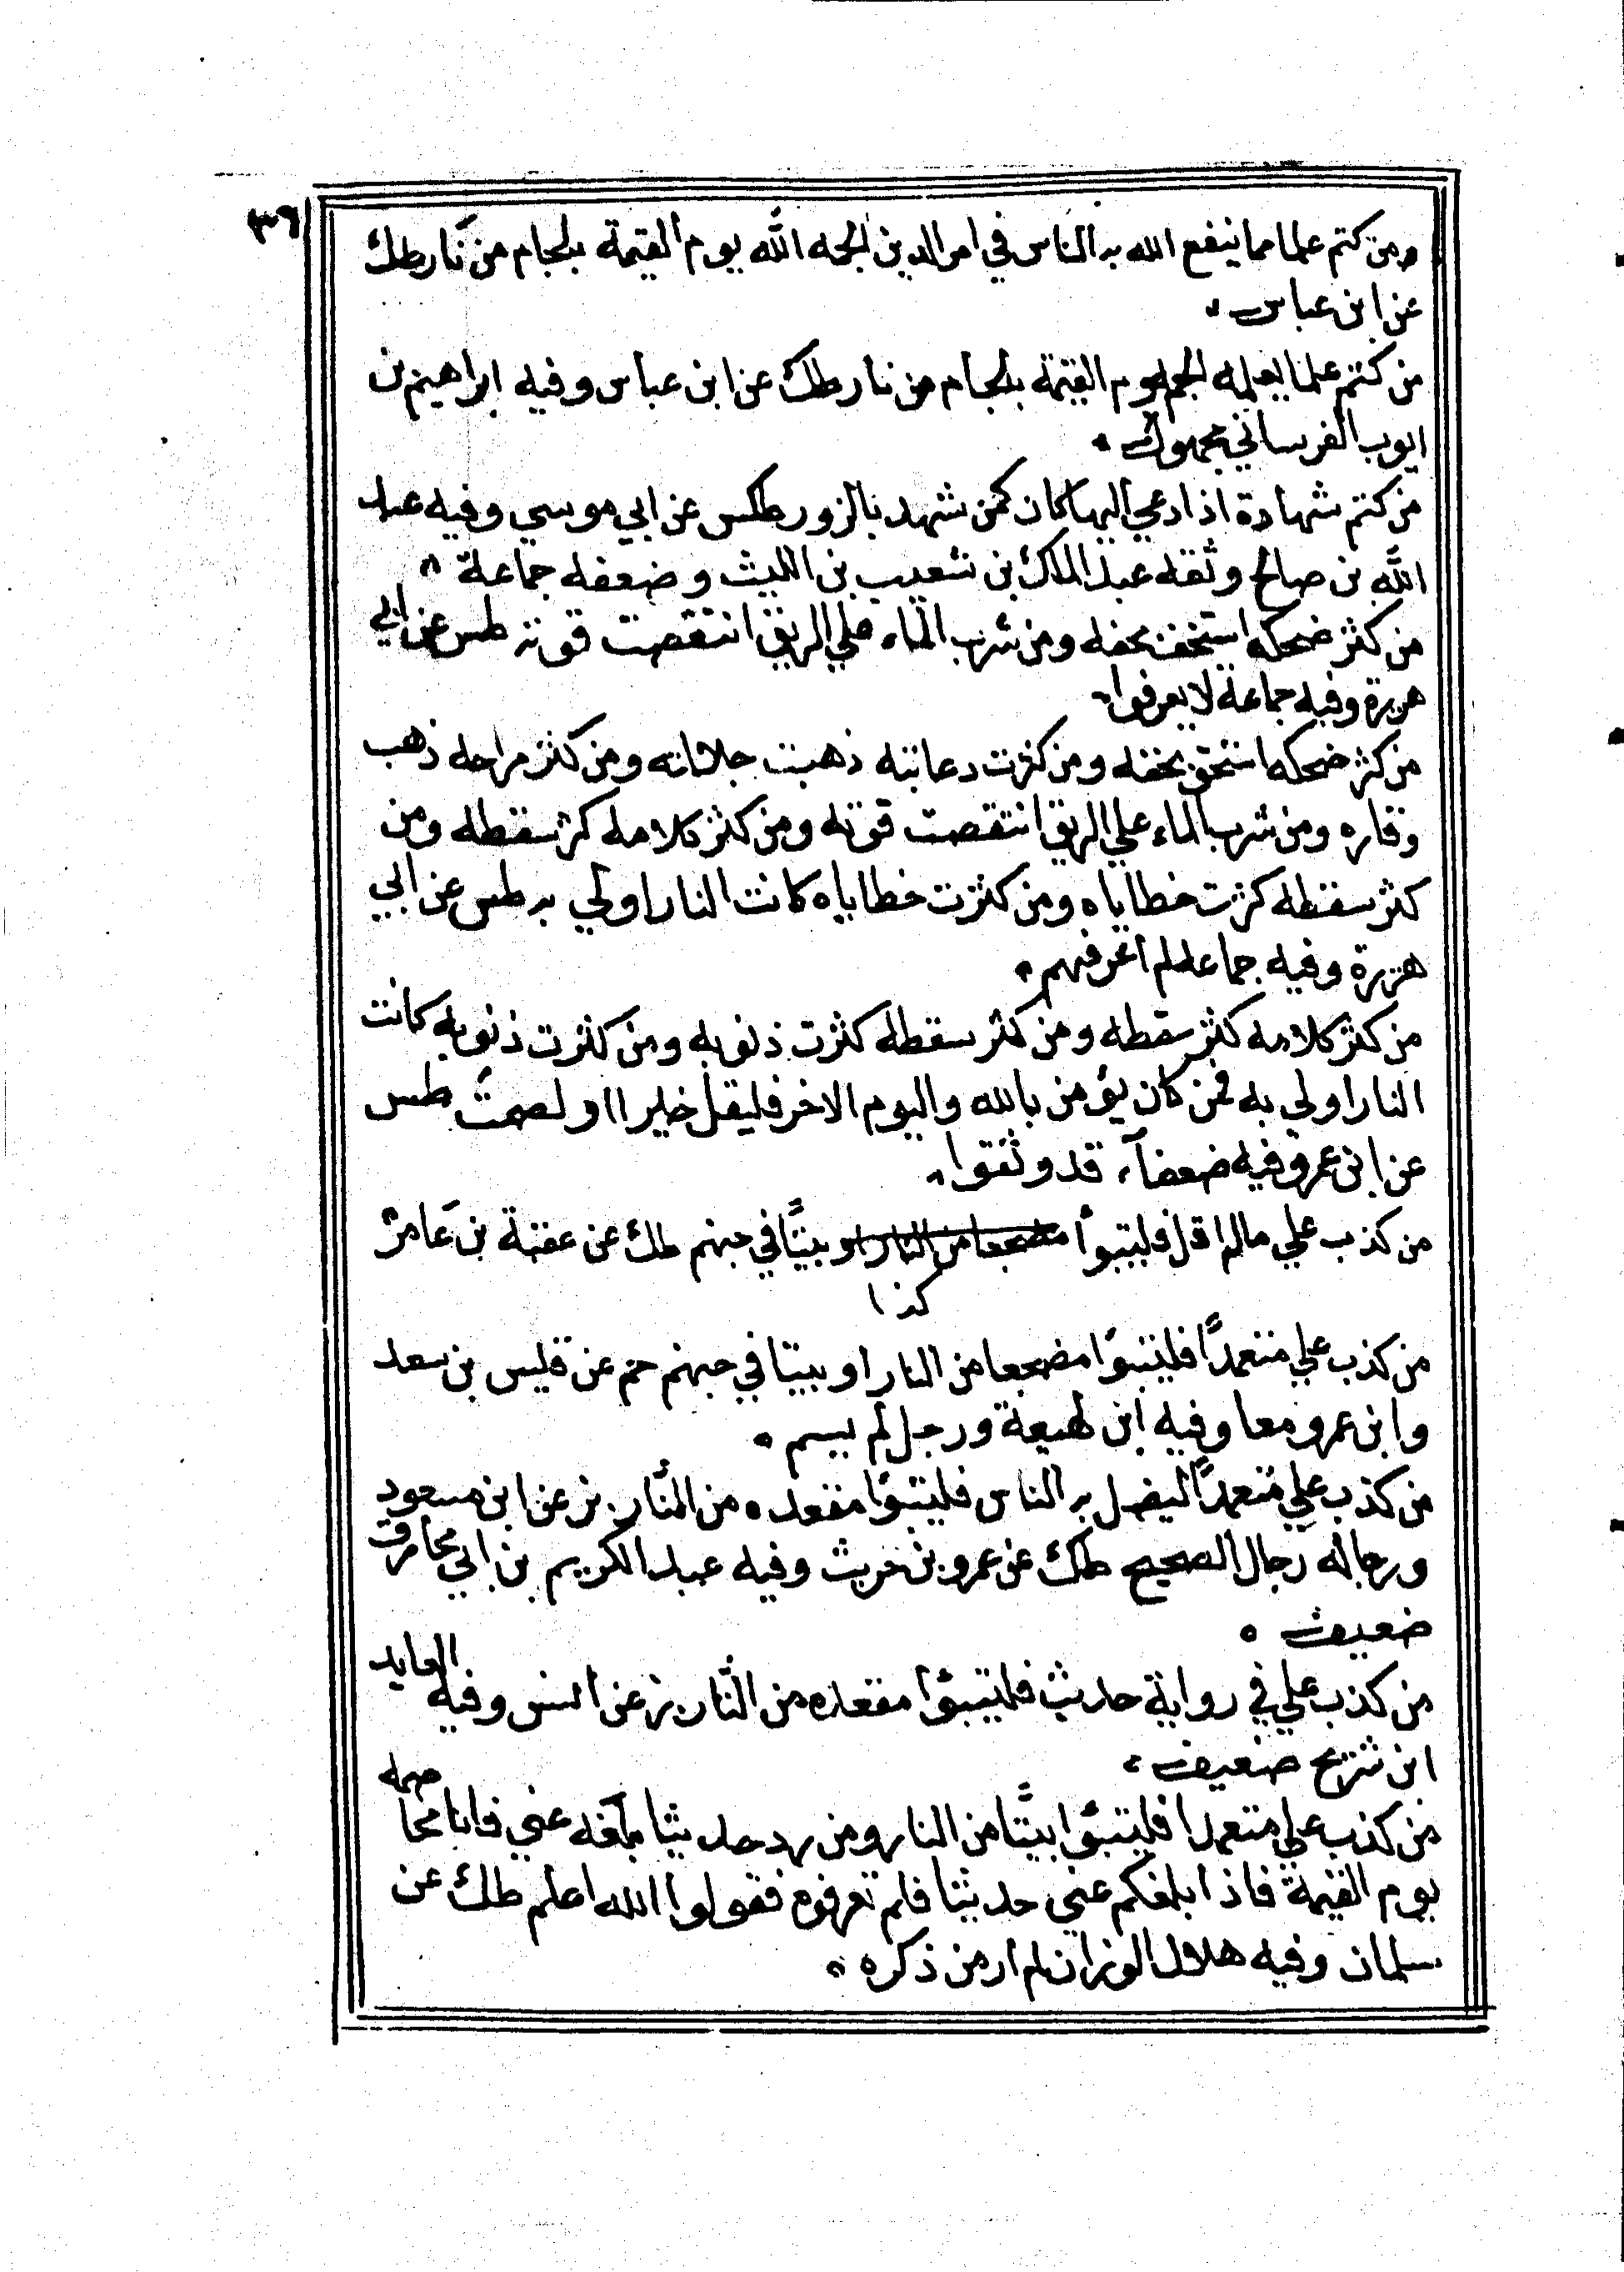 ٣٦
ومن كتم علما مما ينفع الله به الناس في امر الدين الجمه الله يوم القيمة بلجام من نار طك
عن ابن عباس
من كتم علما يعلمه الجم يوم القيمة بلجام من نار طك عن ابن عباس وفيه ابراهيم بن
ايوب الفرساني مجهول
من كتم شهادة اذا دعي اليها كان كمن شهد بالزور طكس عن ابي موسي وفيه عبد
الله بن صالح وثقه عبد الملك بن شعيب بن الليث وضعفه جماعة
من كثر ضحكه استخف بحقه ومن شرب الماء علي الريق انتقصت قوته طس عن ابي
هريرة وفيه جماعة لا يعرفوا
من كثر ضحكه استخف بحقه ومن كثرت دعابته ذهبت جلالته ومن كثر مزاحه ذهب
وقاره ومن شرب الماء علي الريق انتقصت قوته ومن كثر كلامه كثر سقطه ومن
كثر سقطه كثرت خطاياه ومن كثرت خطاياه كانت النار اولي به طس عن ابي
هريرة وفيه جماعة لم اعرفهم
من كثر كلامه كثر سقطه ومن كثر سقطه كثرت ذنوبه ومن كثرت ذنوبه كانت
النار اولي به فمن كان يؤمن بالله واليوم الاخر فليقل خيرا او لصمت طس
عن ابن عمر وفيه ضعفآء قد وثقوا
من كذب علي مالم اقل فليتبوأ مضجعا من النار او بيتًا في جهنم طك عن عقبة بن عامر
كذا
من كذب علي متعمدًا فليتبوّا مضجعا من النار او بيتا في جهنم حم عن قيس بن سعد
وابن عمرو معا وفيه ابن لهيعة ورجل لم يسم
من كذب علي متعمدًا ليضل به الناس فليتبوّا مقعده من النّار بز عن ابن مسعود
ورجاله رجال الصحيح طك عن عمرو بن حريث وفيه عبد الكريم بن ابي مخارق
ضعيف
من كذب علي في رواية حديث فليتبوّا مقعده من النّار بز عن انس وفيه العايد
ابن شريح ضعيف
من كذب علي متعمدا فليتبوّا بيتًا من النار ومن رد حديثا بلغه عني فانا مخاصمه
يوم القيمة فاذا بلغكم عني حديثا فلم تعرفوه فقولوا الله اعلم طك عن
سلمان وفيه هلال الوزان لم ار من ذكره